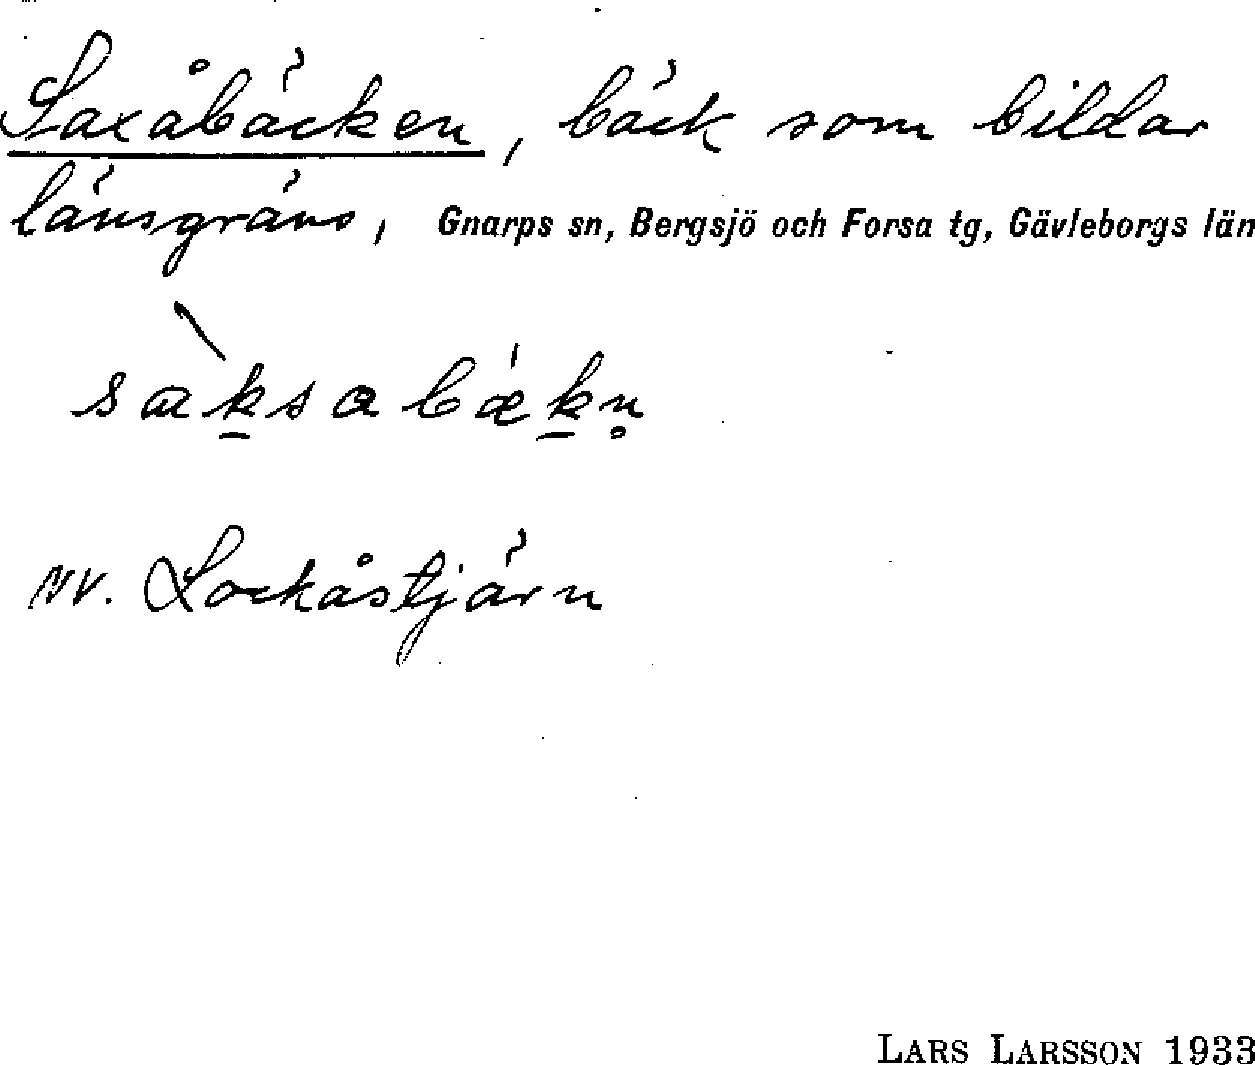 Saxåbäcken, bäck som bildar
länsgräns, Gnarps sn, Bergsjö och Forsa tg, Gävleborgs län
sàksabǽkn̥
nv. Lockåstjärn
LARS LARSSON 1933